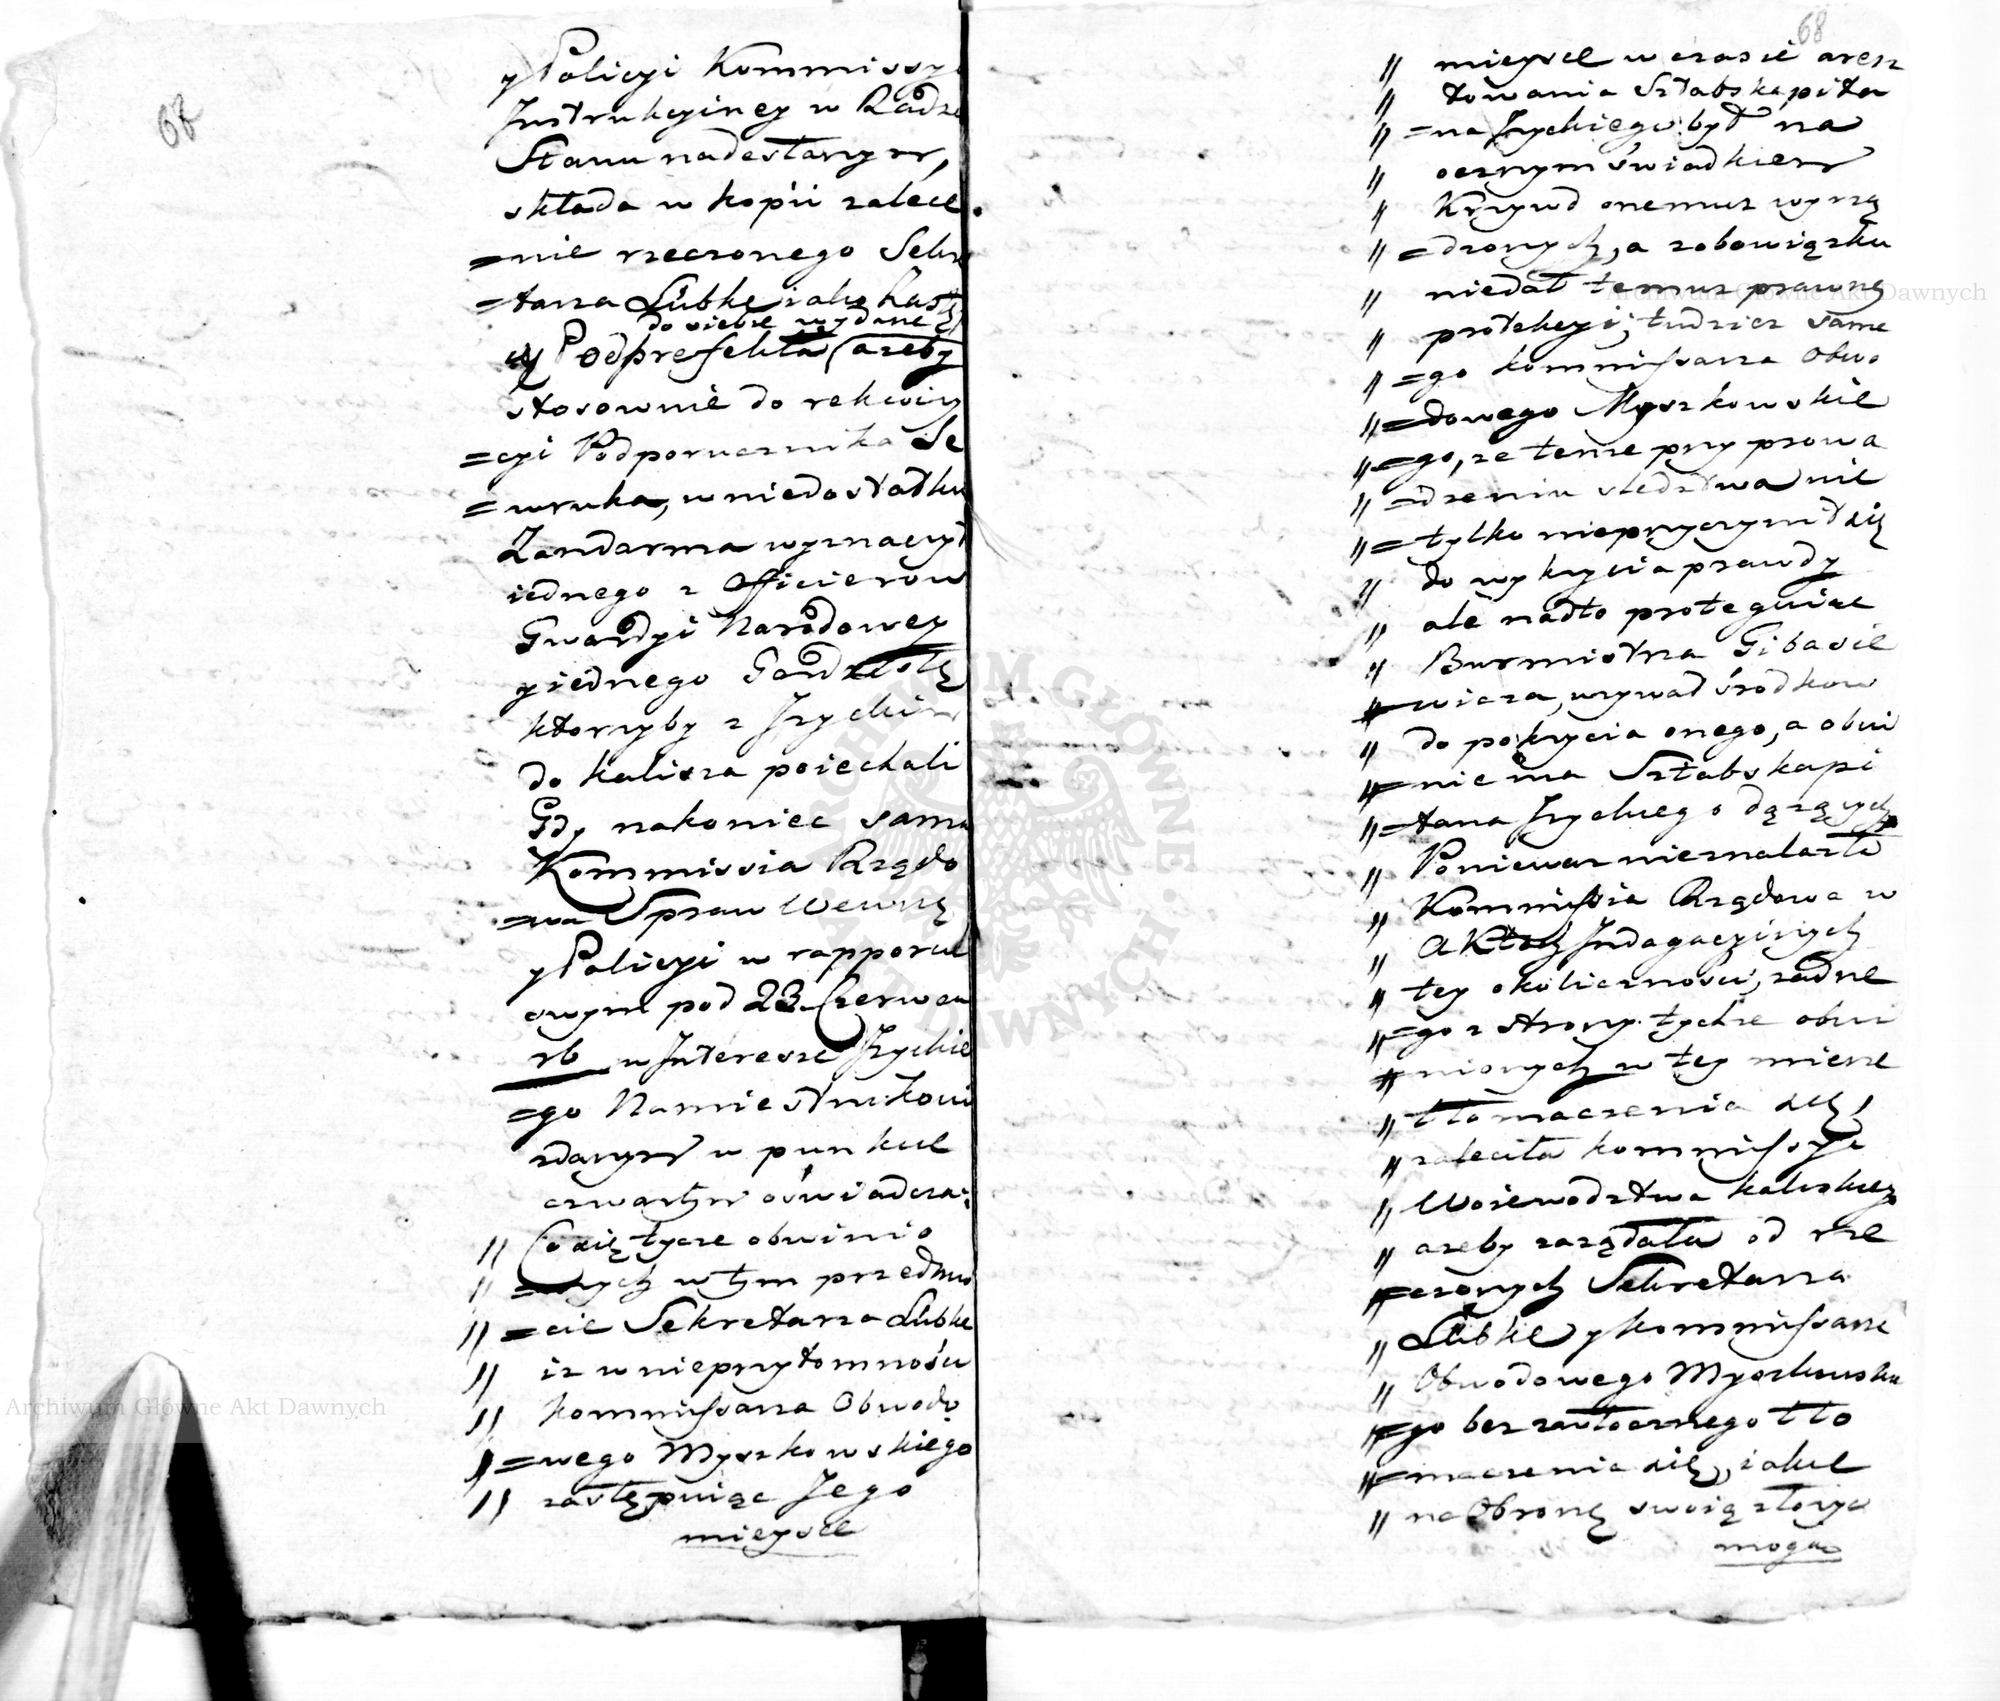 67
y Policyi Kommissyi
Instrukcyiney w Radzie
Stanu nadesłanym,
składa w kopii zalece
=nie rzeczonego Sekre
=tarza Lübke iako Zastę
do siebie wydane
y Podprefekta (azeby
stosownie do rekwizy
=cyi Podporucznika Se
=wruka, w niedostatku
Żandarma wyznaczył
iednego z Officierow
Gwardyi Narodowey
y iednego Gardzistę
ktorzyby z Jzyckim
do Kalisza poiechali
Gdy nakoniec sama
Kommissia Rządo
=wa Spraw Wewnę
y Policyi w rapporcie
swym pod 23. Czerwca
rb w Interesse Jzyckie
=go Namiestnikowi
zdanym w punkcie
czwartym oświadcza:
" Co się tycze obwinio
" =nych w tym przedmio
" =cie Sekretarza Lübke
" iz w nieprzytomności
" Kommissarza Obwodo
" =wego Myszkowskiego
" zastępuiąc Jego
mieysce
68
" mieysce w czasie aresz
" towania Sztabskapita
" =na Jzyckiego był na
" ocznym świadkiem
" Krzywd onemuz wyrzą
" =dzonych, a zobowiązku
" niedał temuz prawney
" protekcyi; tudziez same
" =go Kommissarza Obwo
" =dowego Myszkowskie
" =go, ze tenze przy prowa
" =dzeniu sledztwa nie
" =tylko nieprzyczynił się
" do wykrycia prawdy
" ale nadto proteguiąc
" Burmistrza Gibasie
" =wicza, uzywał środkow
" do pokrycia onego, a obwi
" =nienia Sztabskapi
" =tana Jzyckiego dązących
" Poniewaz nieznalazła
" Kommissia Rządowa w
" Aktach Indagacyinych
" tey okoliczności, zadne
" =go z strony tychze obwi
" =nionych w tey mierze
" tłomaczenia się,
" zaleciła Kommissyi
" Woiewodztwa Kaliskiego
" azeby zaządała od rze
" =czonych Sekretarza
" Lübke y Kommissarza
" Obwodowego Myszkowskie
" =go bezzwłocznego tło
" =maczenia się, iakie
" na Obronę swoią złozyć
mogą
Archiwum Główne Akt Dawnych
Archiwum Główne Akt Dawnych
ARCHIWUM GŁÓWNE AKT DAWNYCH